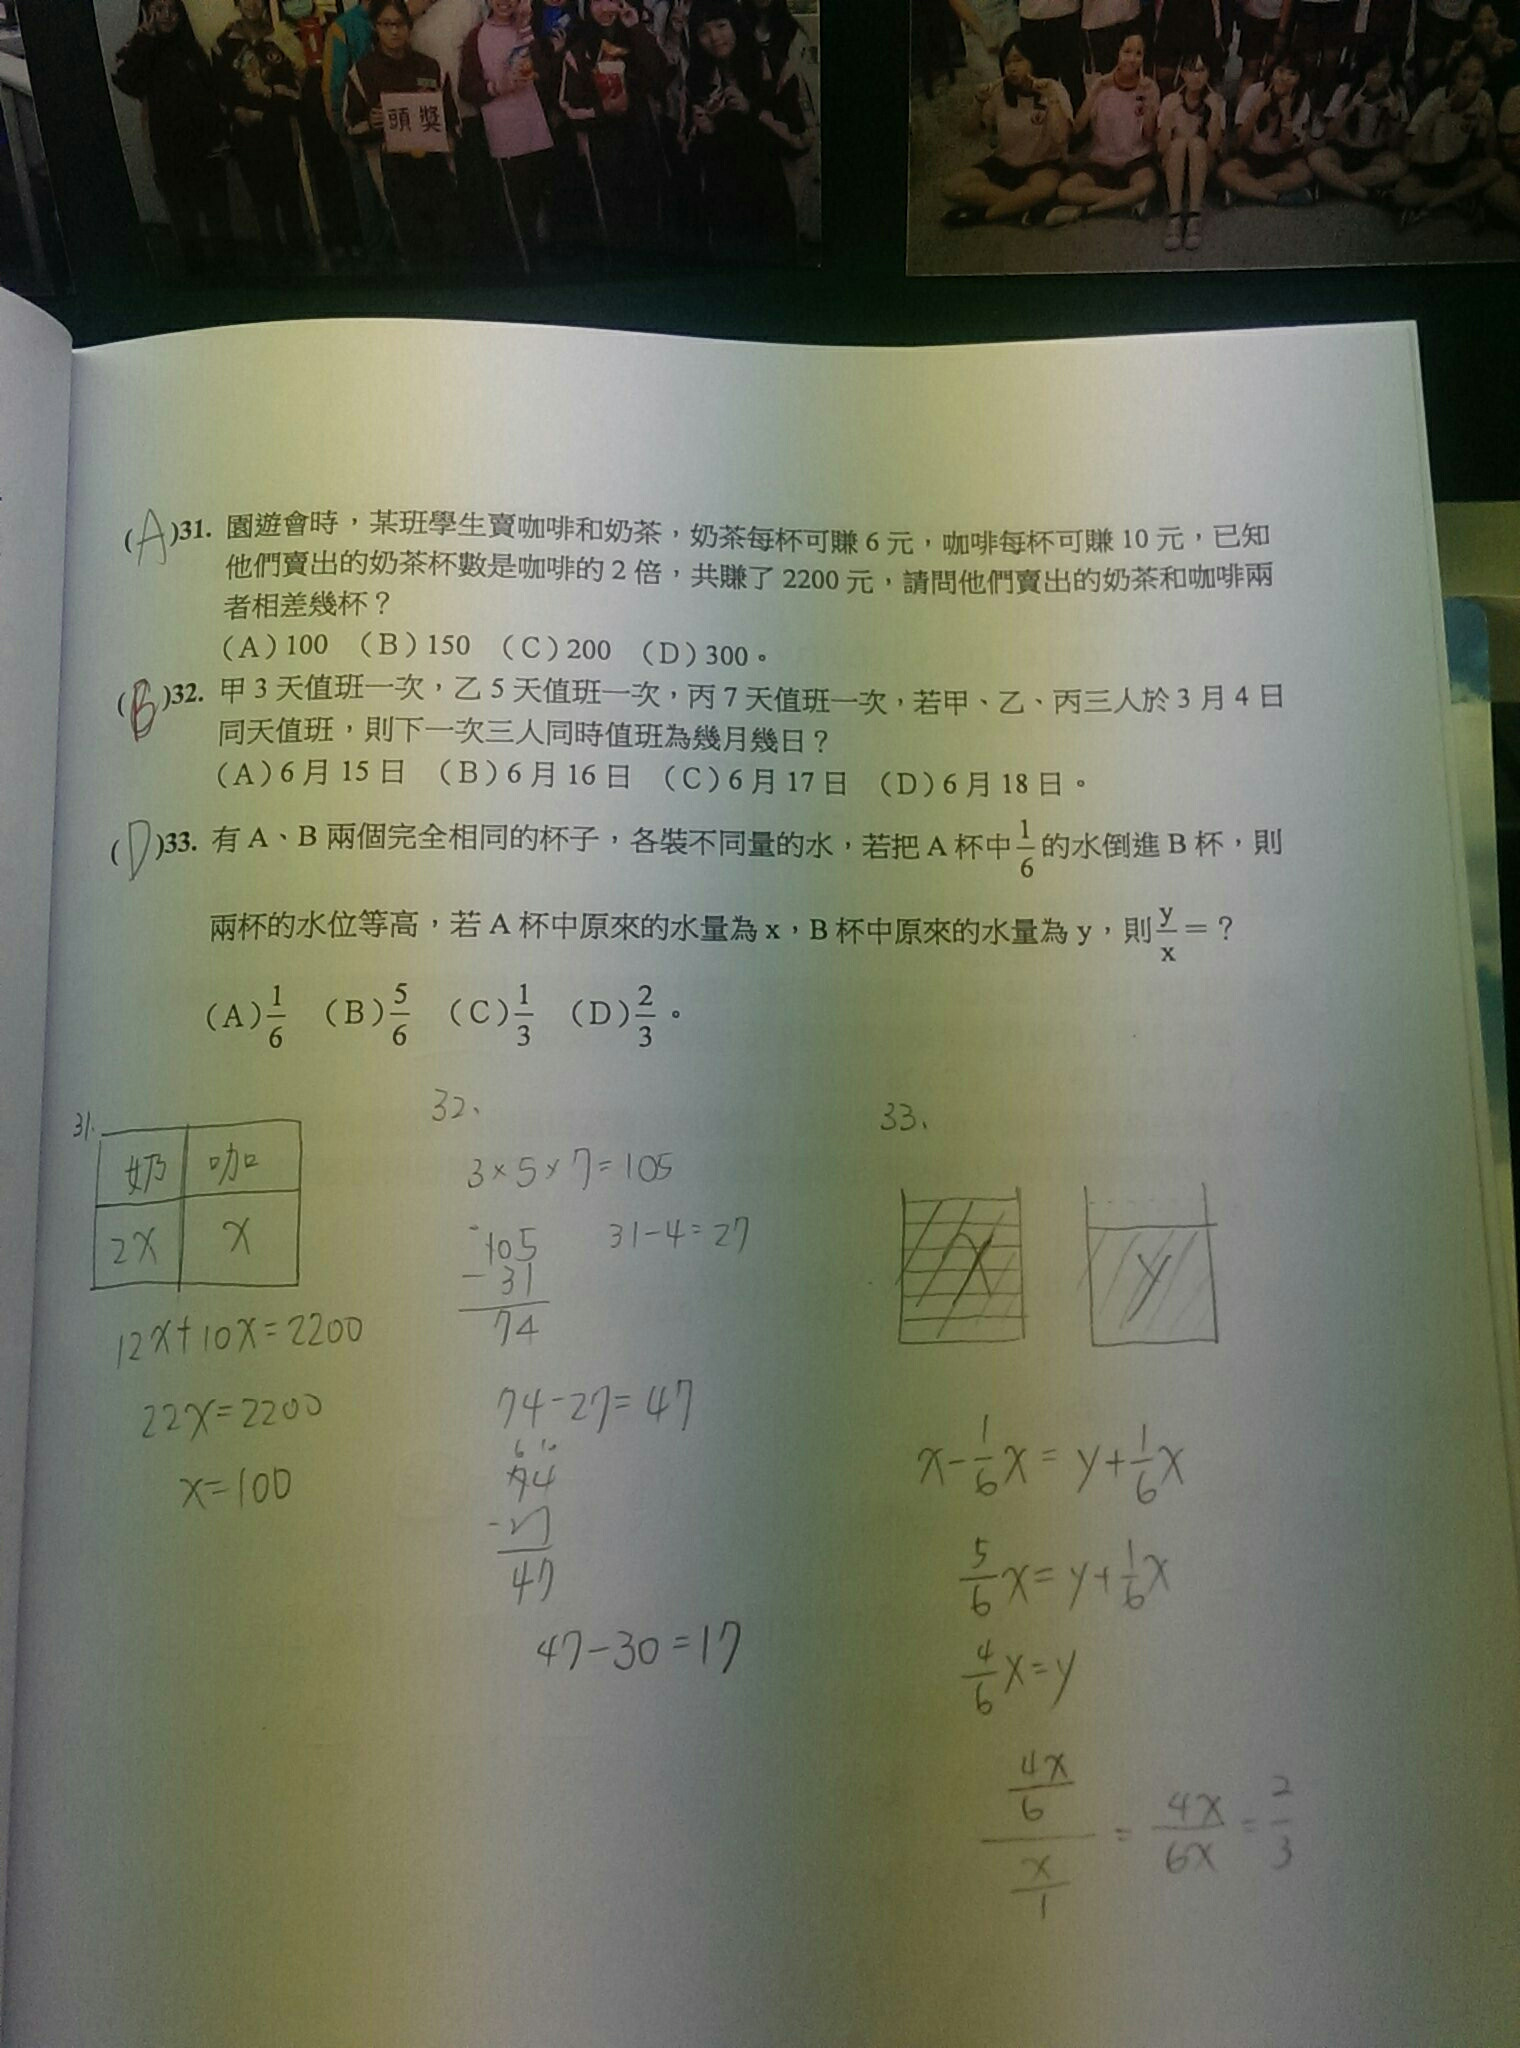 頭獎
(A)31. 園遊會時，某班學生賣咖啡和奶茶，奶茶每杯可賺 6 元，咖啡每杯可賺 10 元，已知
他們賣出的奶茶杯數是咖啡的 2 倍，共賺了 2200 元，請問他們賣出的奶茶和咖啡兩
者相差幾杯？
（A）100 （B）150 （C）200 （D）300。
(B)32. 甲 3 天值班一次，乙 5 天值班一次，丙 7 天值班一次，若甲、乙、丙三人於 3 月 4 日
同天值班，則下一次三人同時值班為幾月幾日？
（A）6 月 15 日 （B）6 月 16 日 （C）6 月 17 日 （D）6 月 18 日。
(D)33. 有 A、B 兩個完全相同的杯子，各裝不同量的水，若把 A 杯中 1/6 的水倒進 B 杯，則
兩杯的水位等高，若 A 杯中原來的水量為 x，B 杯中原來的水量為 y，則 y/x = ？
（A）1/6 （B）5/6 （C）1/3 （D）2/3。
31.
奶 咖
2x x
12x+10x=2200
22x=2200
x=100
32.
3×5×7=105
105
-31
74
31-4=27
74-27=47
6 10
74
-27
47
47-30=17
33.
X Y
x-1/6x=y+1/6x
5/6x=y+1/6x
4/6x=y
4x/6 / x/1 = 4x/6x = 2/3